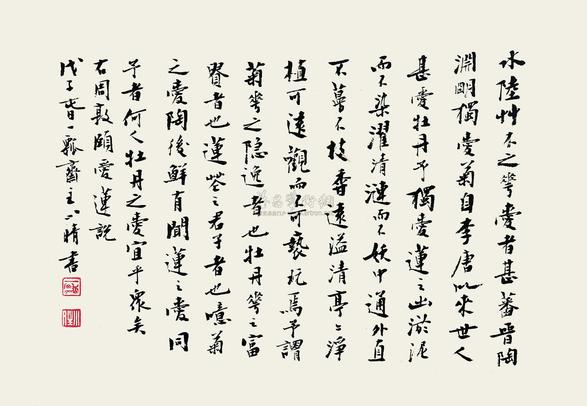 水陸艸木之華愛者甚蕃晉陶
淵明獨愛菊自李唐以來世人
甚愛牡丹予獨愛蓮之出淤泥
而不染濯清漣而不妖中通外直
不蔓不枝香遠溢清亭々淨
植可遠觀而不可褻玩焉予謂
菊華之隐逸者也牡丹華之富
貴者也蓮華之君子者也噫菊
之愛陶後鮮有聞蓮之愛同
予者何人牡丹之愛宜乎眾矣
右周敦頤愛蓮説
戊子日一瓢齋主晴書